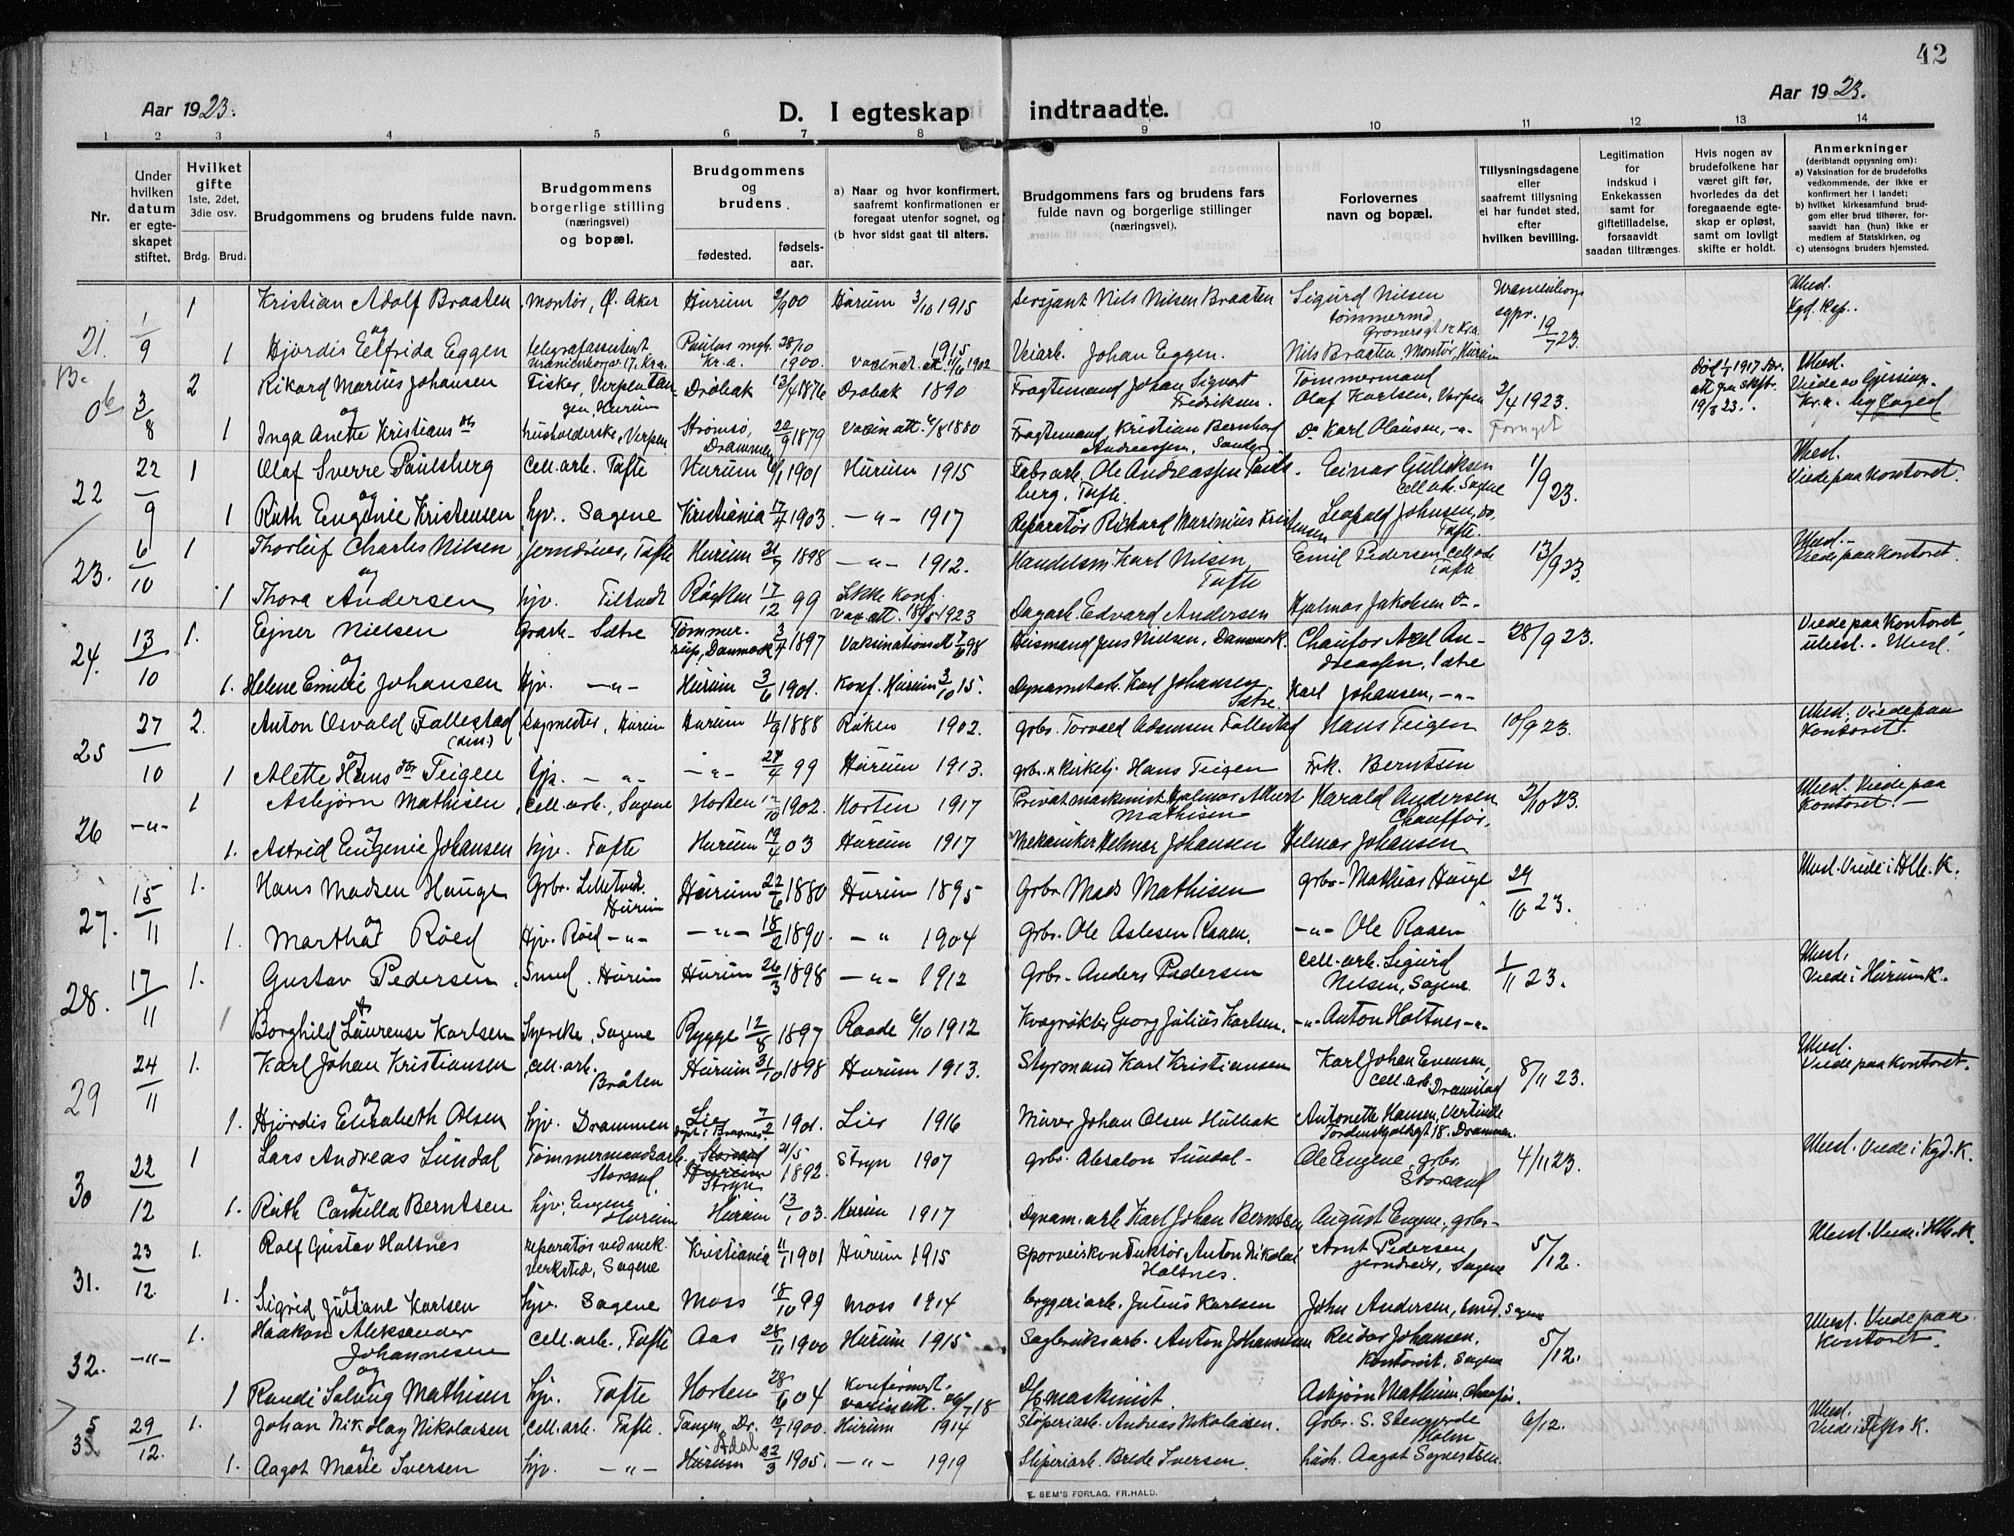 42
Aar 1923.
D. I egteskap indtraadte.
Aar 1923.
1 2 3 4 5 6 7 8 9 10 11 12 13 14
Nr.
Under hvilken datum er egteskapet stiftet.
Hvilket gifte 1ste, 2det, 3die osv.
Brdg. Brud.
Brudgommens og brudens fulde navn.
Brudgommens borgerlige stilling (næringsvei) og bopæl.
Brudgommens og brudens
fødested. fødselsaar.
a) Naar og hvor konfirmert, saafremt konfirmationen er foregaat utenfor sognet, og
(b hvor sidst gaat til alters.
Brudgommens fars og brudens fars fulde navn og borgerlige stillinger (næringsvei).
Forlovernes navn og bopæl.
Tillysningsdagene eller saafremt tillysning ei har fundet sted, efter hvilken bevilling.
Legitimation for indskud i Enkekassen samt for giftetilladelse, forsaavidt saadan tiltrænges.
Hvis nogen av brudefolkene har været gift før, hvorledes da det foregaaende egteskap er opløst, samt om lovligt skifte er holdt.
Anmerkninger (deriblandt oplysning om):
a) Vaksination for de brudefolks vedkommende, der ikke er konfirmert her i landet;
b) hvilket kirkesamfund brudgom eller brud tilhører, forsaavidt han (hun) ikke er medlem af Statskirken, og
c) utensogns bruders hjemsted.
21. 1/9 1 Kristian Adolf Braaten montør, Ø. Aker Hurum 2/9 00 Hurum 3/10 1915 Sersjant Nils Nilsen Braaten Sigurd Nilsen tømmermd. 19/7 23. Uhesl.
og
1 Hjørdis Elfrida Eggen telegrafassistent Kr.a. 28/10 1900. 1915 vacinat. att. 11/6 1902 Veiarb. Johan Eggen. Nils Braaten, Montør, Hurum
3/8 2 Rikard Marius Johansen Fisker, Verpen Tangen Hurum Drøbak 13/4 1876 Drøbak 1890 Fragtemand Johan Sigvart Fredriksen. Tømmermand Olaf Karlsen, Verpen 3/4 1923. 19/3 23. Uhesl.
og
1 Inga Anette Kristiansdtr husholderske, Verpen Strømsø, Drammen 20/9 1879 Vacin att. 4/8 1880 Fragtemand Kristian Bernhard Andreassen, Do Karl Olausen, -"- Fornyet
22 22/9 1 Olaf Sverre Paulsberg Cell.arb. Tofte Hurum 6/1 1901 Hurum 1915 Fabr.arb. Ole Andreassen Paulsberg, Tofte. Einar Gulliksen cell.arb. Sagene 1/9 23. Uhesl. Viede paa Kontoret.
og
1 Ruth Eugenie Kristensen hjv. Sagene Kristiania 17/4 1903 -"- 1917 Reparatør Rickard Marinius Kristensen Leopold Johnsen, do, Tofte.
23. 6/10 1 Thorleif Charles Nilsen jerndreier, Tofte Hurum 21/7 1898 -"- 1912. Handelsm. Karl Nilsen Tofte Emil Pedersen Cell.arb Tofte 13/9 23. Uhesl. Viede paa Kontoret.
og
1 Thora Andersen hjv. Tilstadt Røyken 17/12 99 Ikke konf. vac. att. 18/5 1923 Dagarb. Edvard Andersen Hjalmar Jakobsen Do-.
24. 13/10 1. Ejner Nielsen Grarb. Sætre Danmark 3/4 1897 Vaksinations att 7/6 98 Jens Nielsen, Danmark. Chaufør Axel Andreassen, Sætre 28/9 23. Viede paa Kontoret, ubesl. - Uhesl.
og
1. Helene Emilie Johansen Hjv. -"- Hurum 3/6 1901. Konf. Hurum 3/10 15. Dynamitarb. Karl Johansen Sætre. Karl Johansen, -"-
25 27/10 2. Anton Osvald Follestad (diss.) Sagmester, Hurum Hurum 11/9 1888 Røken 1902. grbr. Torvald Adamsen Follestad Hans Teigen 10/9 23. Uhesl. Viede paa Kontoret.
og
1 Alette Hansdtr Teigen hjv. -"- -"- 27/4 99 Hurum 1913. grbr. & kirketj. Hans Teigen Frk. Berntsen
26 -"- 1 Asbjørn Mathisen Cell.arb., Sagene Horten 12/10 1902. Horten 1917 Privat maskinist Hjalmar Albert Mathisen Harald Andersen Chauffør, 2/10 23. Uhesl. Viede paa Kontoret.
og
1. Astrid Eugenie Johansen hjv. Tofte Hurum 19/4 03 Hurum 1917 Mekaniker Helmer Johansen Helmer Johansen
27. 15/11 1. Hans Madsen Hauge Grbr. Hurum Hurum 22/6 1880 Hurum 1895 Grbr. Mads Mathisen grbr. Mathias Hauge 29/10 23. Uhesl. Viede i Hlb. K.
og
1. Martha Røed Hjv. Røed -"- -"- 18/2 1890. -"- 1904 Grbr. Ole Aslesen Raaen. -"- Ole Raaen
28. 17/11 1. Gustav Pedersen Smed, Hurum Hurum 26/3 1898 -"- 1912 grbr. Anders Pedersen Cell.arb. Sigurd Nilsen, Sagene 1/11 23. Uhesl. Viede i Hurum K.
1 Borghild Laurense Karlsen Syerske, Sagene Rygge 12/8 1897 Raade 6/10 1912 Kvægrøkter Georg Julius Karlsen. -"- Anton Holtnes -"-
29 24/11 1. Karl Johan Kristiansen Cell.arb. Bråten Hurum 31/10 1898 Hurum 1913. Styrmand Karl Kristiansen Karl Johan Evensen, cell.arb. 8/11 23. Uhesl. Viede paa Kontoret.
1. Hjørdis Elisabeth Olsen hjv. Drammen Lier 7/2 1901. Lier 1916 Murer Johan Olsen Hulbak Antonette Hansen, Tordenskjoldsgt 18. Drammen.
30 22/12 1 Lars Andreas Sundal Tømmermandsarb. Storsand. Stryn 21/5 1892. Stryn 1907 grbr. Absalon Sundal- Ole Engene, grbr. Storsand 4/11 23. Uhesl. Viede i Kgd. K.
og
1. Ruth Camilla Berntsen hjv. Engene Hurum Hurum 13/1 03. Hurum 1917 Dynam.arb Karl Johan Berntsen August Engene, grbr-
31. 23/12. 1. Rolf Gustav Holtnes reparatør ved mek. verksted, Sagene Kristiania 11/1 1901 Hurum 1915 Sporveiskonduktør Anton Nikolai Holtnes. Arnt Pedersen jerndreier, Sagene 5/12. Uhesl. Viede i Hlb. K.
og
1. Sigrid Juliane Karlsen hjv. Sagene Moss 18/10 99 Moss 1914 bryggeriarb. Julius Karlsen John Andersen, smed, Sagene
32. -"- 1. Haakon Aleksander Johannesen Cell.arb., Tofte Aas 28/11 1900 Hurum 1915 Sagbruksarb. Anton Johannesen Reidar Johansen, Kontorist, Sagene 5/12. Uhesl. Viede paa Kontoret.
og
1 Randi Solveig Mathisen hjv. Tofte Horten 28/6 04 Konfirmert. vacin att. 26/7 18 maskinist. Asbjørn Mathisen, chauffør.
29/12. 1. Johan Nik. Hay Nikolaisen Cell.arb. Tofte. Tangen, Dr. 1900. Hurum 1914 Støperiarb. Andreas Nikolaisen. Grbr. S. Holm 6/12. Uhesl.
og
1. Aagot Marie Iversen hjv. -"- Hurum Ådal 22/3 1905. -"- 1919 Sliperiarb. Brede Iversen. Aagot
E. SEM'S FORLAG, FR.HALD.